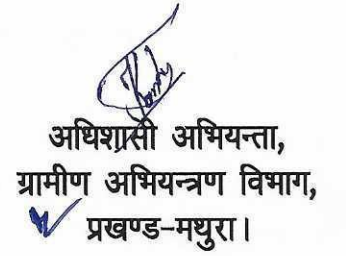 अधिशासी अभियन्ता,
ग्रामीण अभियन्त्रण विभाग,
प्रखण्ड-मथुरा।